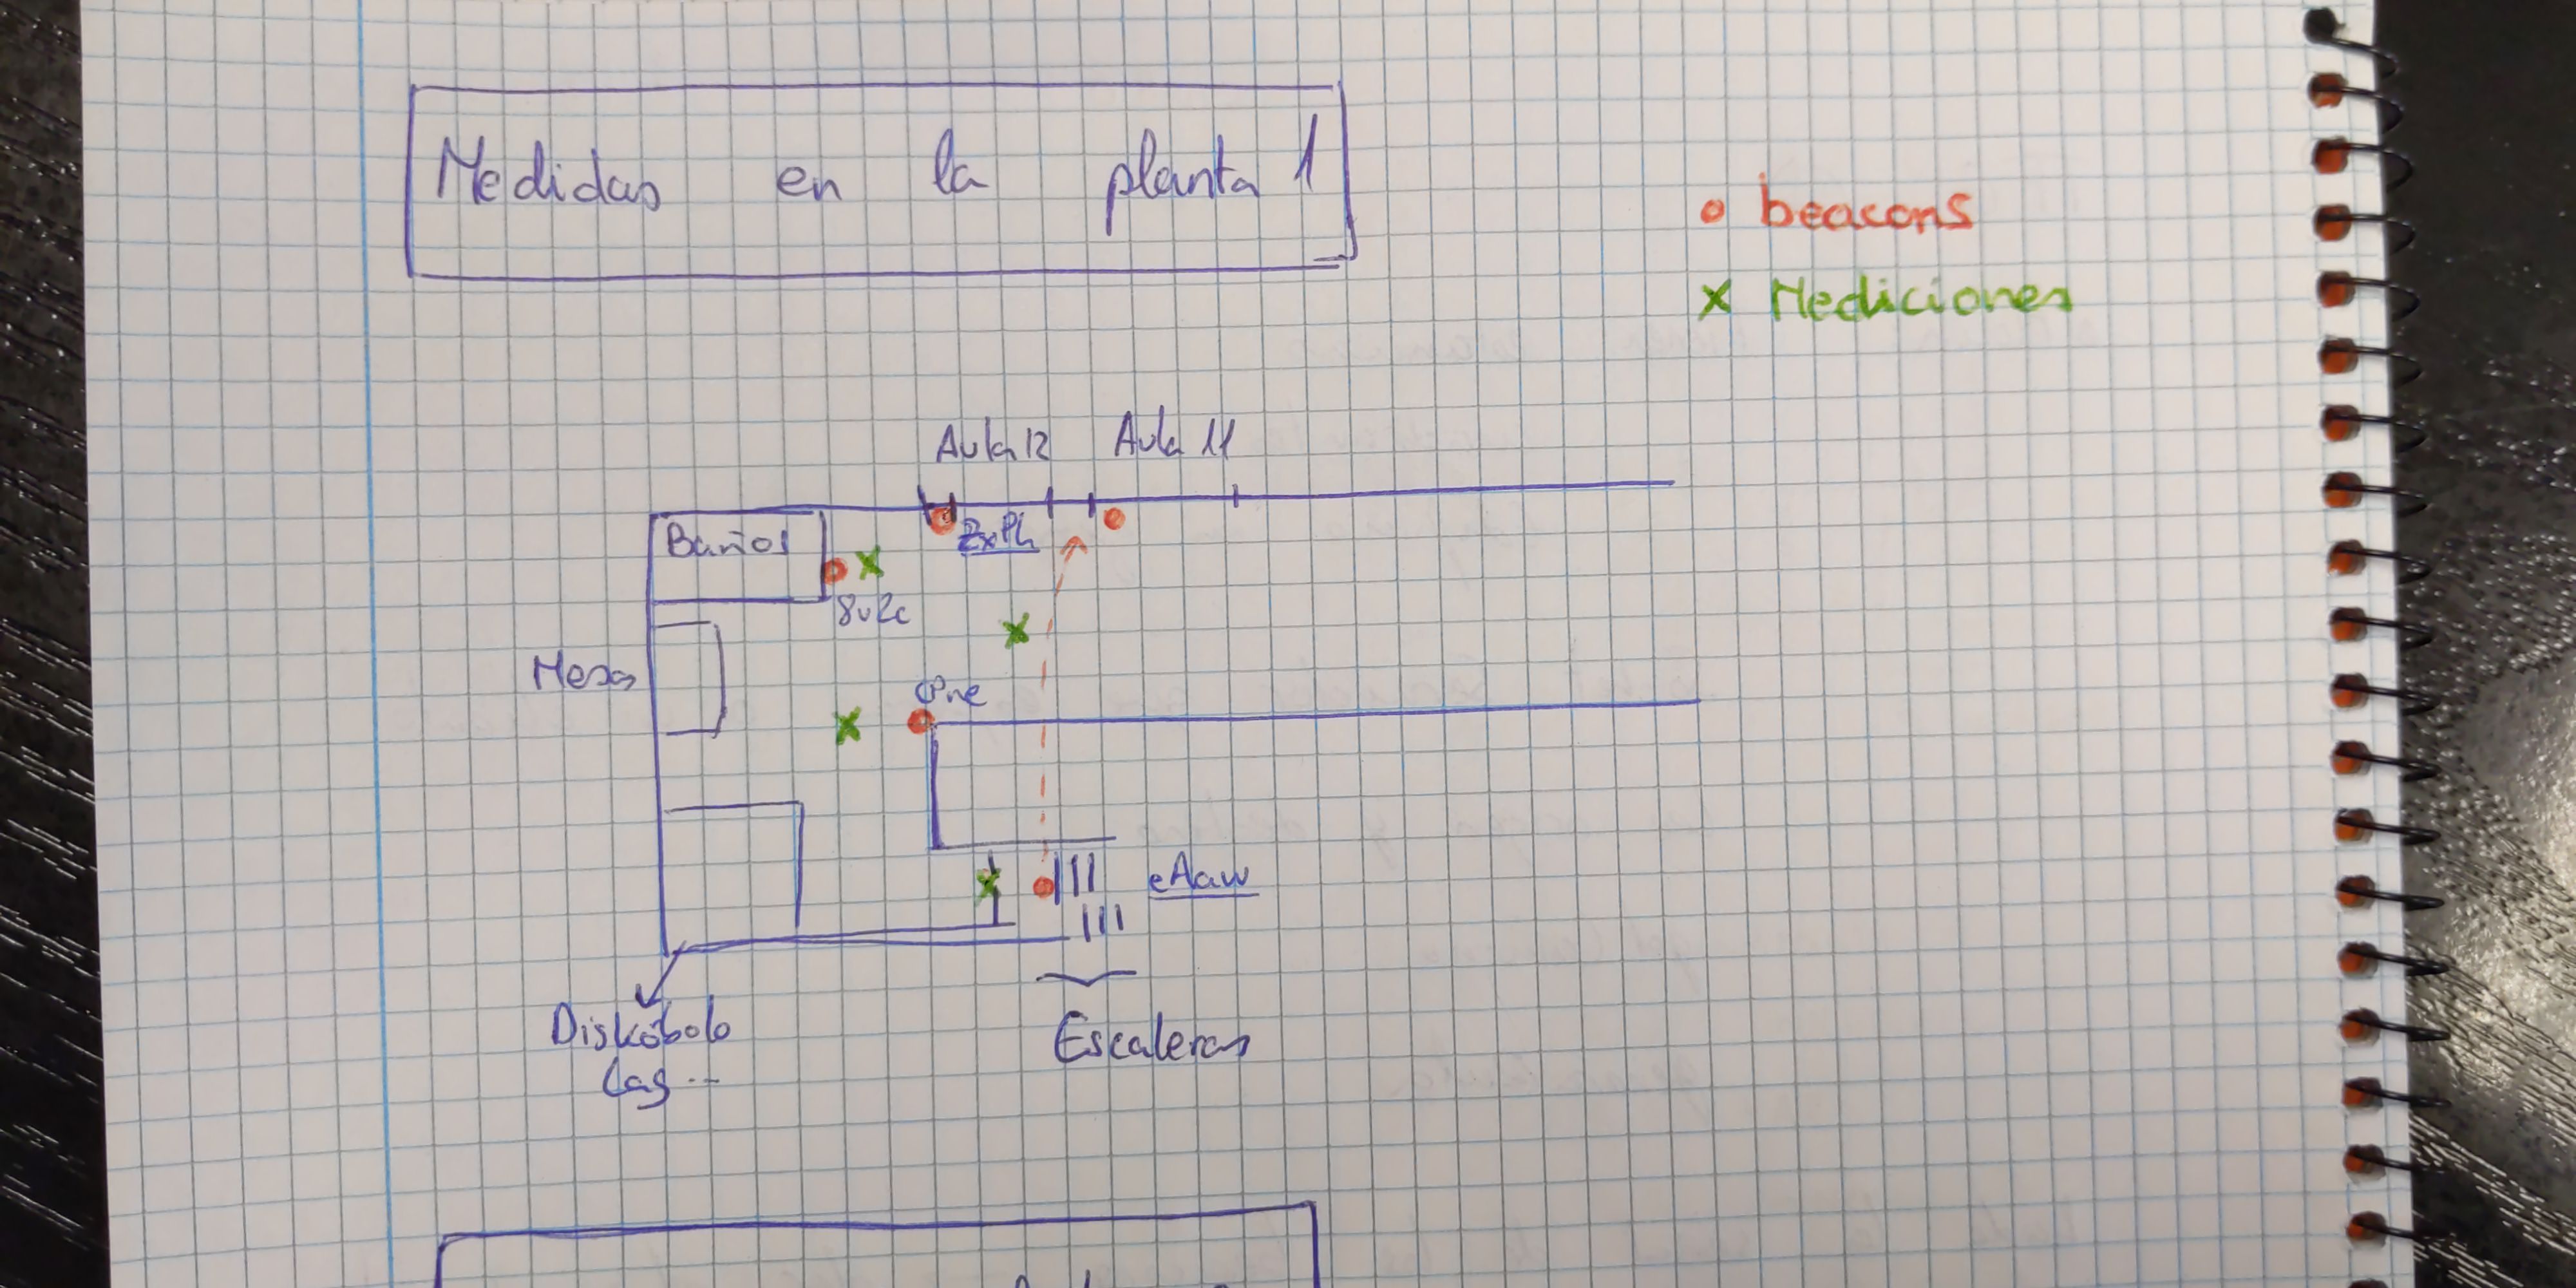 Medidas en la planta 1
o beacons
x Mediciones
Aula 12 Aula 11
Baños
ZxPh
8v2c
Mesa
eAaw
Diskóbolo
Escaleras